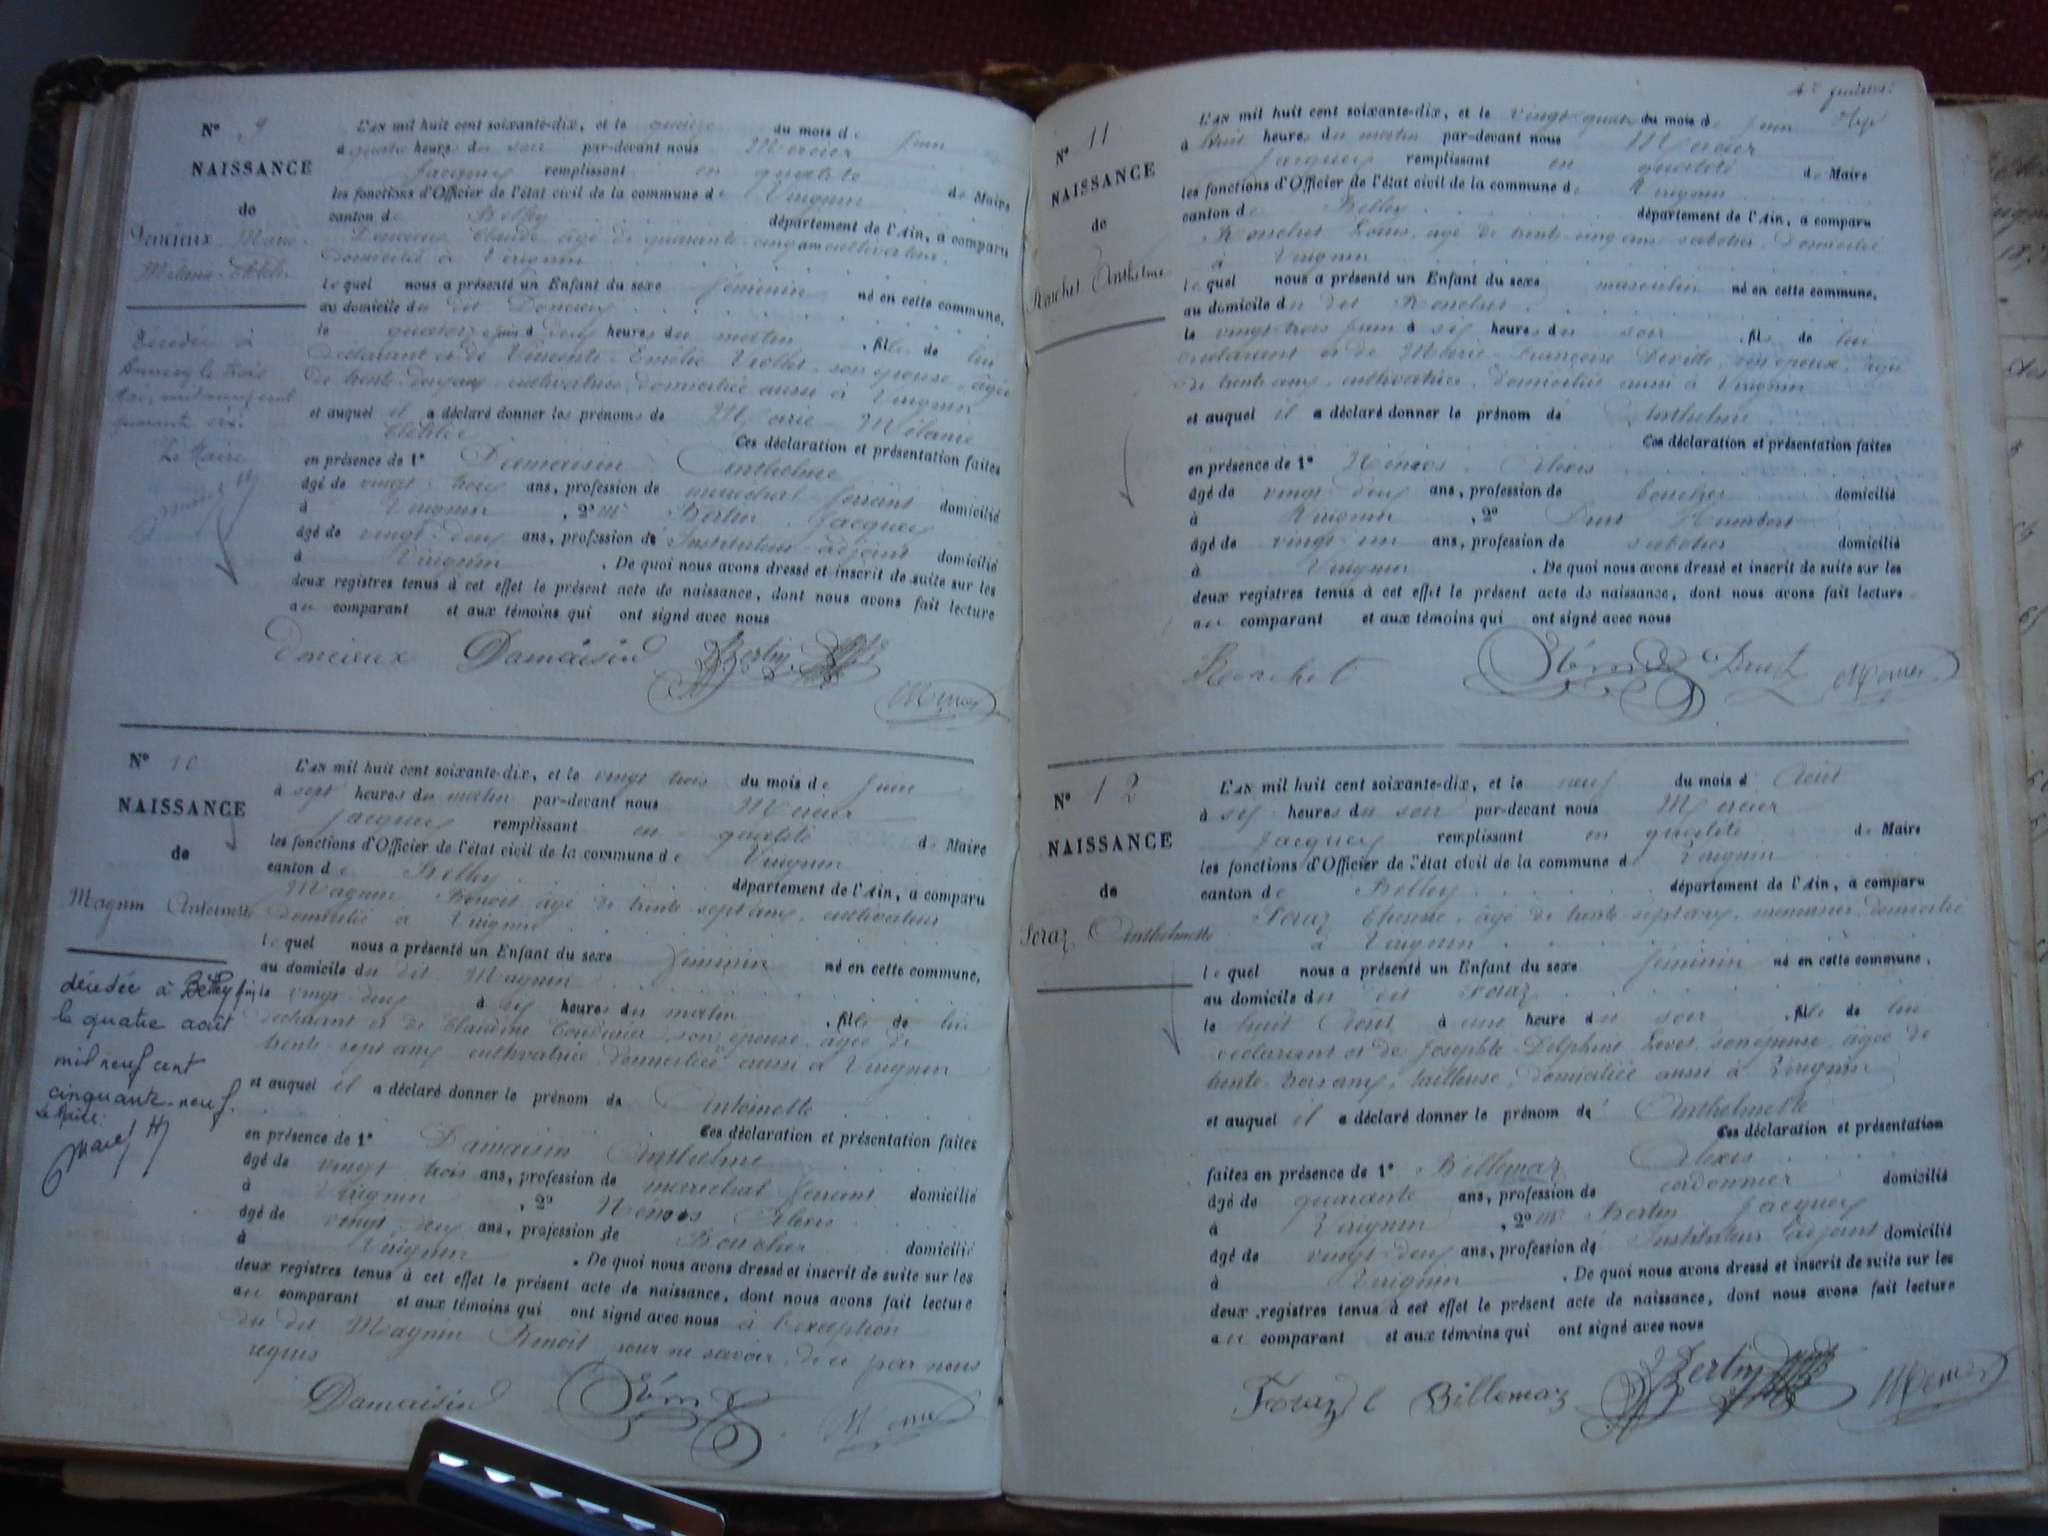 N° 9
NAISSANCE
de
Doncieux Marie
Mélanie Clotilde
Décédée à
Annecy le trois
mil neuf cent
quarante six.
Le Maire
L'AN mil huit cent soixante-dix, et le quinze du mois de Juin
à quatre heures du soir par-devant nous Mercier
Jacques remplissant en qualité de Maire
les fonctions d'Officier de l'état civil de la commune de Virignin
canton de Belley département de l'Ain, a comparu
Doncieux Claude âgé de quarante cinq ans cultivateur
domicilié à Virignin
lequel nous a présenté un Enfant du sexe féminin né en cette commune,
au domicile du dit Doncieux
le quatorze juin à deux heures du matin, fille de lui
déclarant et de Emélie Viollet, son épouse, âgée
de trente deux ans, cultivatrice, domiciliée aussi à Virignin
et auquel il a déclaré donner les prénoms de Marie Mélanie
Clotilde Ces déclaration et présentation faites
en présence de 1° Damaisin Anthelme
âgé de vingt trois ans, profession de maréchal ferrant domicilié
à Virignin, 2° Mr Bertin Jacques
âgé de vingt-deux ans, profession de Instituteur adjoint domicilié
à Virignin. De quoi nous avons dressé et inscrit de suite sur les
deux registres tenus à cet effet le présent acte de naissance, dont nous avons fait lecture
au comparant et aux témoins qui ont signé avec nous
Doncieux Damaisin Bertin Mercier
N° 10
NAISSANCE
de
Magnin Antoinette
décédée à Belley
le quatre août
mil neuf cent
cinquante-neuf.
Le Maire
L'AN mil huit cent soixante-dix, et le vingt trois du mois de Juin
à sept heures du matin par-devant nous Mercier
Jacques remplissant en qualité de Maire
les fonctions d'Officier de l'état civil de la commune de Virignin
canton de Belley département de l'Ain, a comparu
Magnin Benoit âgé de trente sept ans, cultivateur
domicilié à Virignin
lequel nous a présenté un Enfant du sexe féminin né en cette commune,
au domicile du dit Magnin
le vingt deux à six heures du matin, fille de lui
déclarant et de Claudine son épouse, âgée de
trente sept ans cultivatrice domiciliée aussi à Virignin
et auquel il a déclaré donner le prénom de Antoinette
Ces déclaration et présentation faites
en présence de 1° Damaisin Anthelme
âgé de vingt trois ans, profession de marrechal ferrant domicilié
à Virignin, 2° Alexis
âgé de vingt deux ans, profession de Boucher domicilié
à Virignin. De quoi nous avons dressé et inscrit de suite sur les
deux registres tenus à cet effet le présent acte de naissance, dont nous avons fait lecture
au comparant et aux témoins qui ont signé avec nous à l'exception
du dit Magnin Benoit pour ne savoir, de ce par nous
requis
Damaisin Mercier
N° 11
NAISSANCE
de
Ronchet Anthelme
L'AN mil huit cent soixante-dix, et le vingt quatre du mois de Juin
à huit heures du matin par-devant nous Mercier
Jacques remplissant en qualité de Maire
les fonctions d'Officier de l'état civil de la commune de Virignin
canton de Belley département de l'Ain, a comparu
Ronchet Louis, âgé de trente-cinq ans sabotier, domicilié
à Virignin
lequel nous a présenté un Enfant du sexe masculin né en cette commune,
au domicile du dit Ronchet
le vingt-trois Juin à six heures du soir, fils de lui
déclarant et de Marie Françoise son épouse, âgée
de trente ans, cultivatrice, domiciliée aussi à Virignin
et auquel il a déclaré donner le prénom de Anthelme
Ces déclaration et présentation faites
en présence de 1° Alexis
âgé de vingt-deux ans, profession de boucher domicilié
à Virignin, 2° Humbert
âgé de vingt-un ans, profession de sabotier domicilié
à Virignin. De quoi nous avons dressé et inscrit de suite sur les
deux registres tenus à cet effet le présent acte de naissance, dont nous avons fait lecture
au comparant et aux témoins qui ont signé avec nous
Ronchet Mercier
N° 12
NAISSANCE
de
Foraz Anthelmette
L'AN mil huit cent soixante-dix, et le neuf du mois d'Août
à six heures du soir par-devant nous Mercier
Jacques remplissant en qualité de Maire
les fonctions d'Officier de l'état civil de la commune de Virignin
canton de Belley département de l'Ain, a comparu
Foraz Etienne, âgé de trente-sept ans, menuisier, domicilié
à Virignin
lequel nous a présenté un Enfant du sexe féminin né en cette commune,
au domicile du dit Foraz
le huit Août à une heure du soir, fille de lui
déclarant et de Josephte Delphine son épouse âgée de
trente-trois ans, tailleuse, domiciliée aussi à Virignin
et auquel il a déclaré donner le prénom de Anthelmette
Ces déclaration et présentation
faites en présence de 1° Billemaz Alexis
âgé de quarante ans, profession de cordonnier domicilié
à Virignin, 2° Mr Bertin Jacques
âgé de vingt-deux ans, profession de Instituteur adjoint domicilié
à Virignin. De quoi nous avons dressé et inscrit de suite sur les
deux registres tenus à cet effet le présent acte de naissance, dont nous avons fait lecture
au comparant et aux témoins qui ont signé avec nous
Foraz Billemaz Bertin Mercier